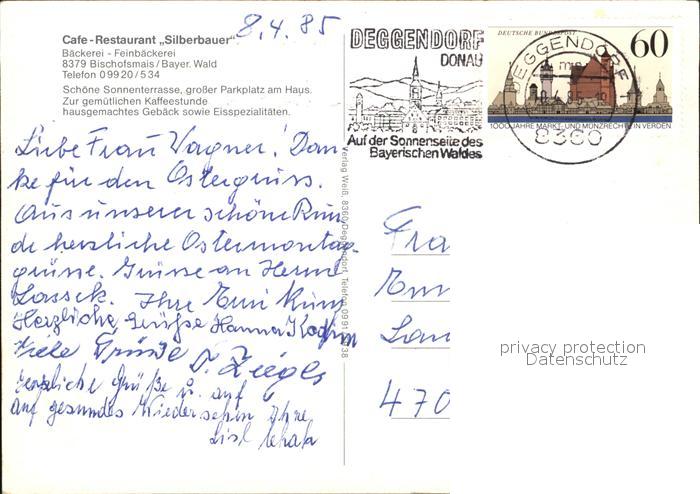 8.4.85
Cafe-Restaurant „Silberbauer"
Bäckerei - Feinbäckerei
8379 Bischofsmais / Bayer. Wald
Telefon 0 99 20 / 5 34
Schöne Sonnenterrasse, großer Parkplatz am Haus.
Zur gemütlichen Kaffeestunde
hausgemachtes Gebäck sowie Eisspezialitäten.
Liebe Frau Wagner! Dan-
ke für den Ostergruss.
Aus unserer schöne Run-
de herzliche Ostermontag-
grüsse. Grüsse an Herrn
Lassek. Ihre
Herzliche Grüße Hanna
Viele Grüße
Herzliche Grüße u. auf
auf gesundes Wiedersehen Ihre
Lisl
Verlag Weiß, 8360 Deggendorf, Telefon 09 91
DEGGENDORF
DONAU
Auf der Sonnenseite des
Bayerischen Waldes
DEUTSCHE BUNDESPOST
60
1000 JAHRE MARKT- UND MÜNZRECHT IN VERDEN
DEGGENDORF
8360
Fra
Lan
470
privacy protection
Datenschutz